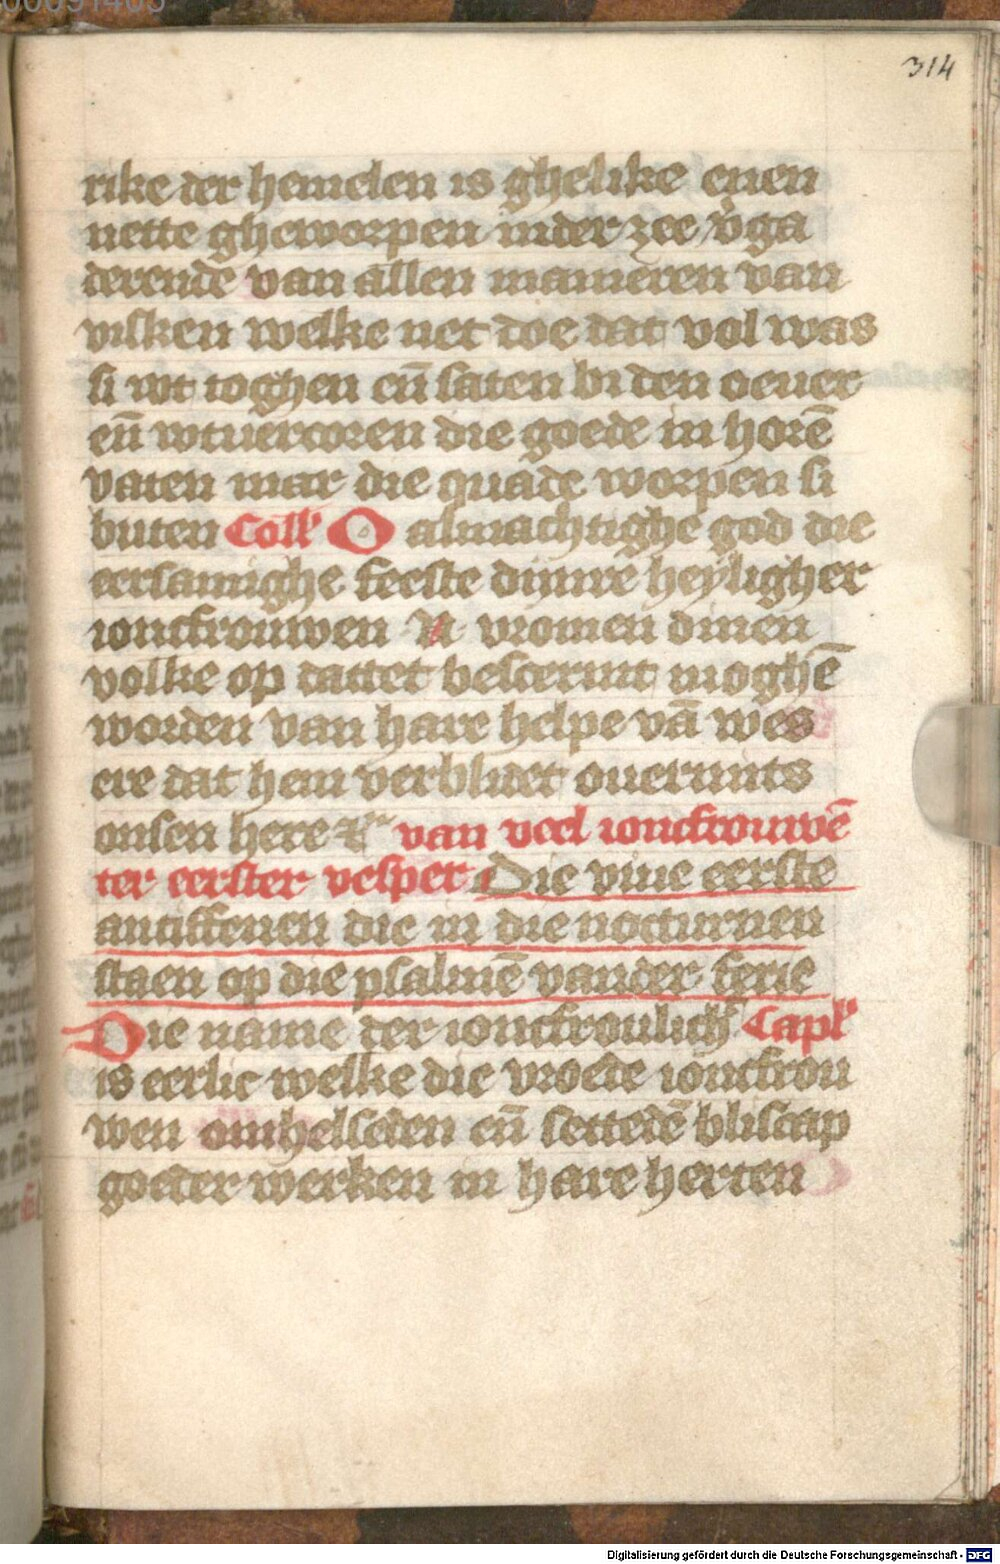 00091403
314
rike der hemelen is ghelike enen
nette gheworpen inder zee v̄ga
derende van allen manieren van
visken welke net doe dat vol was
si wt toghen eñ saten bi den oeuer
eñ wtuercoren die goede in horē
vaten mar die quade worpen si
buten Coll' O almachtighe god die
eersamighe feeste dinre heyligher
ioncfrouwen N vromen dinen
volke op dattet beschermt moghē
worden van hare helpe vā wes
ere dat hem verblidet ouermits
onsen here &c van veel ioncfrouwē
ter eerster vesper Die viue eerste
antiffenen die in die nocturnen
staen op die psalmē vander ferie
Die name der ioncfroulich' Capl'
is eerlic welke die vroede ioncfrou
wen omhelseden eñ settedē bliscap
goeder werken in hare herten
Digitalisierung gefördert durch die Deutsche Forschungsgemeinschaft - DFG